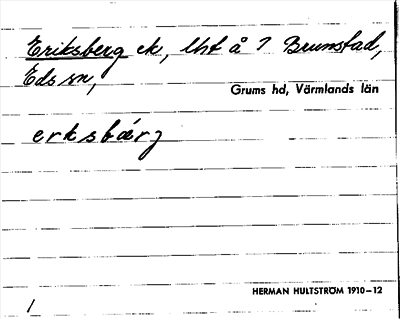 Eriksberg ck, lht å ? Brunstad,
Eds sn,
Grums hd, Värmlands län
erksbærj
HERMAN HULTSTRÖM 1910–12
1